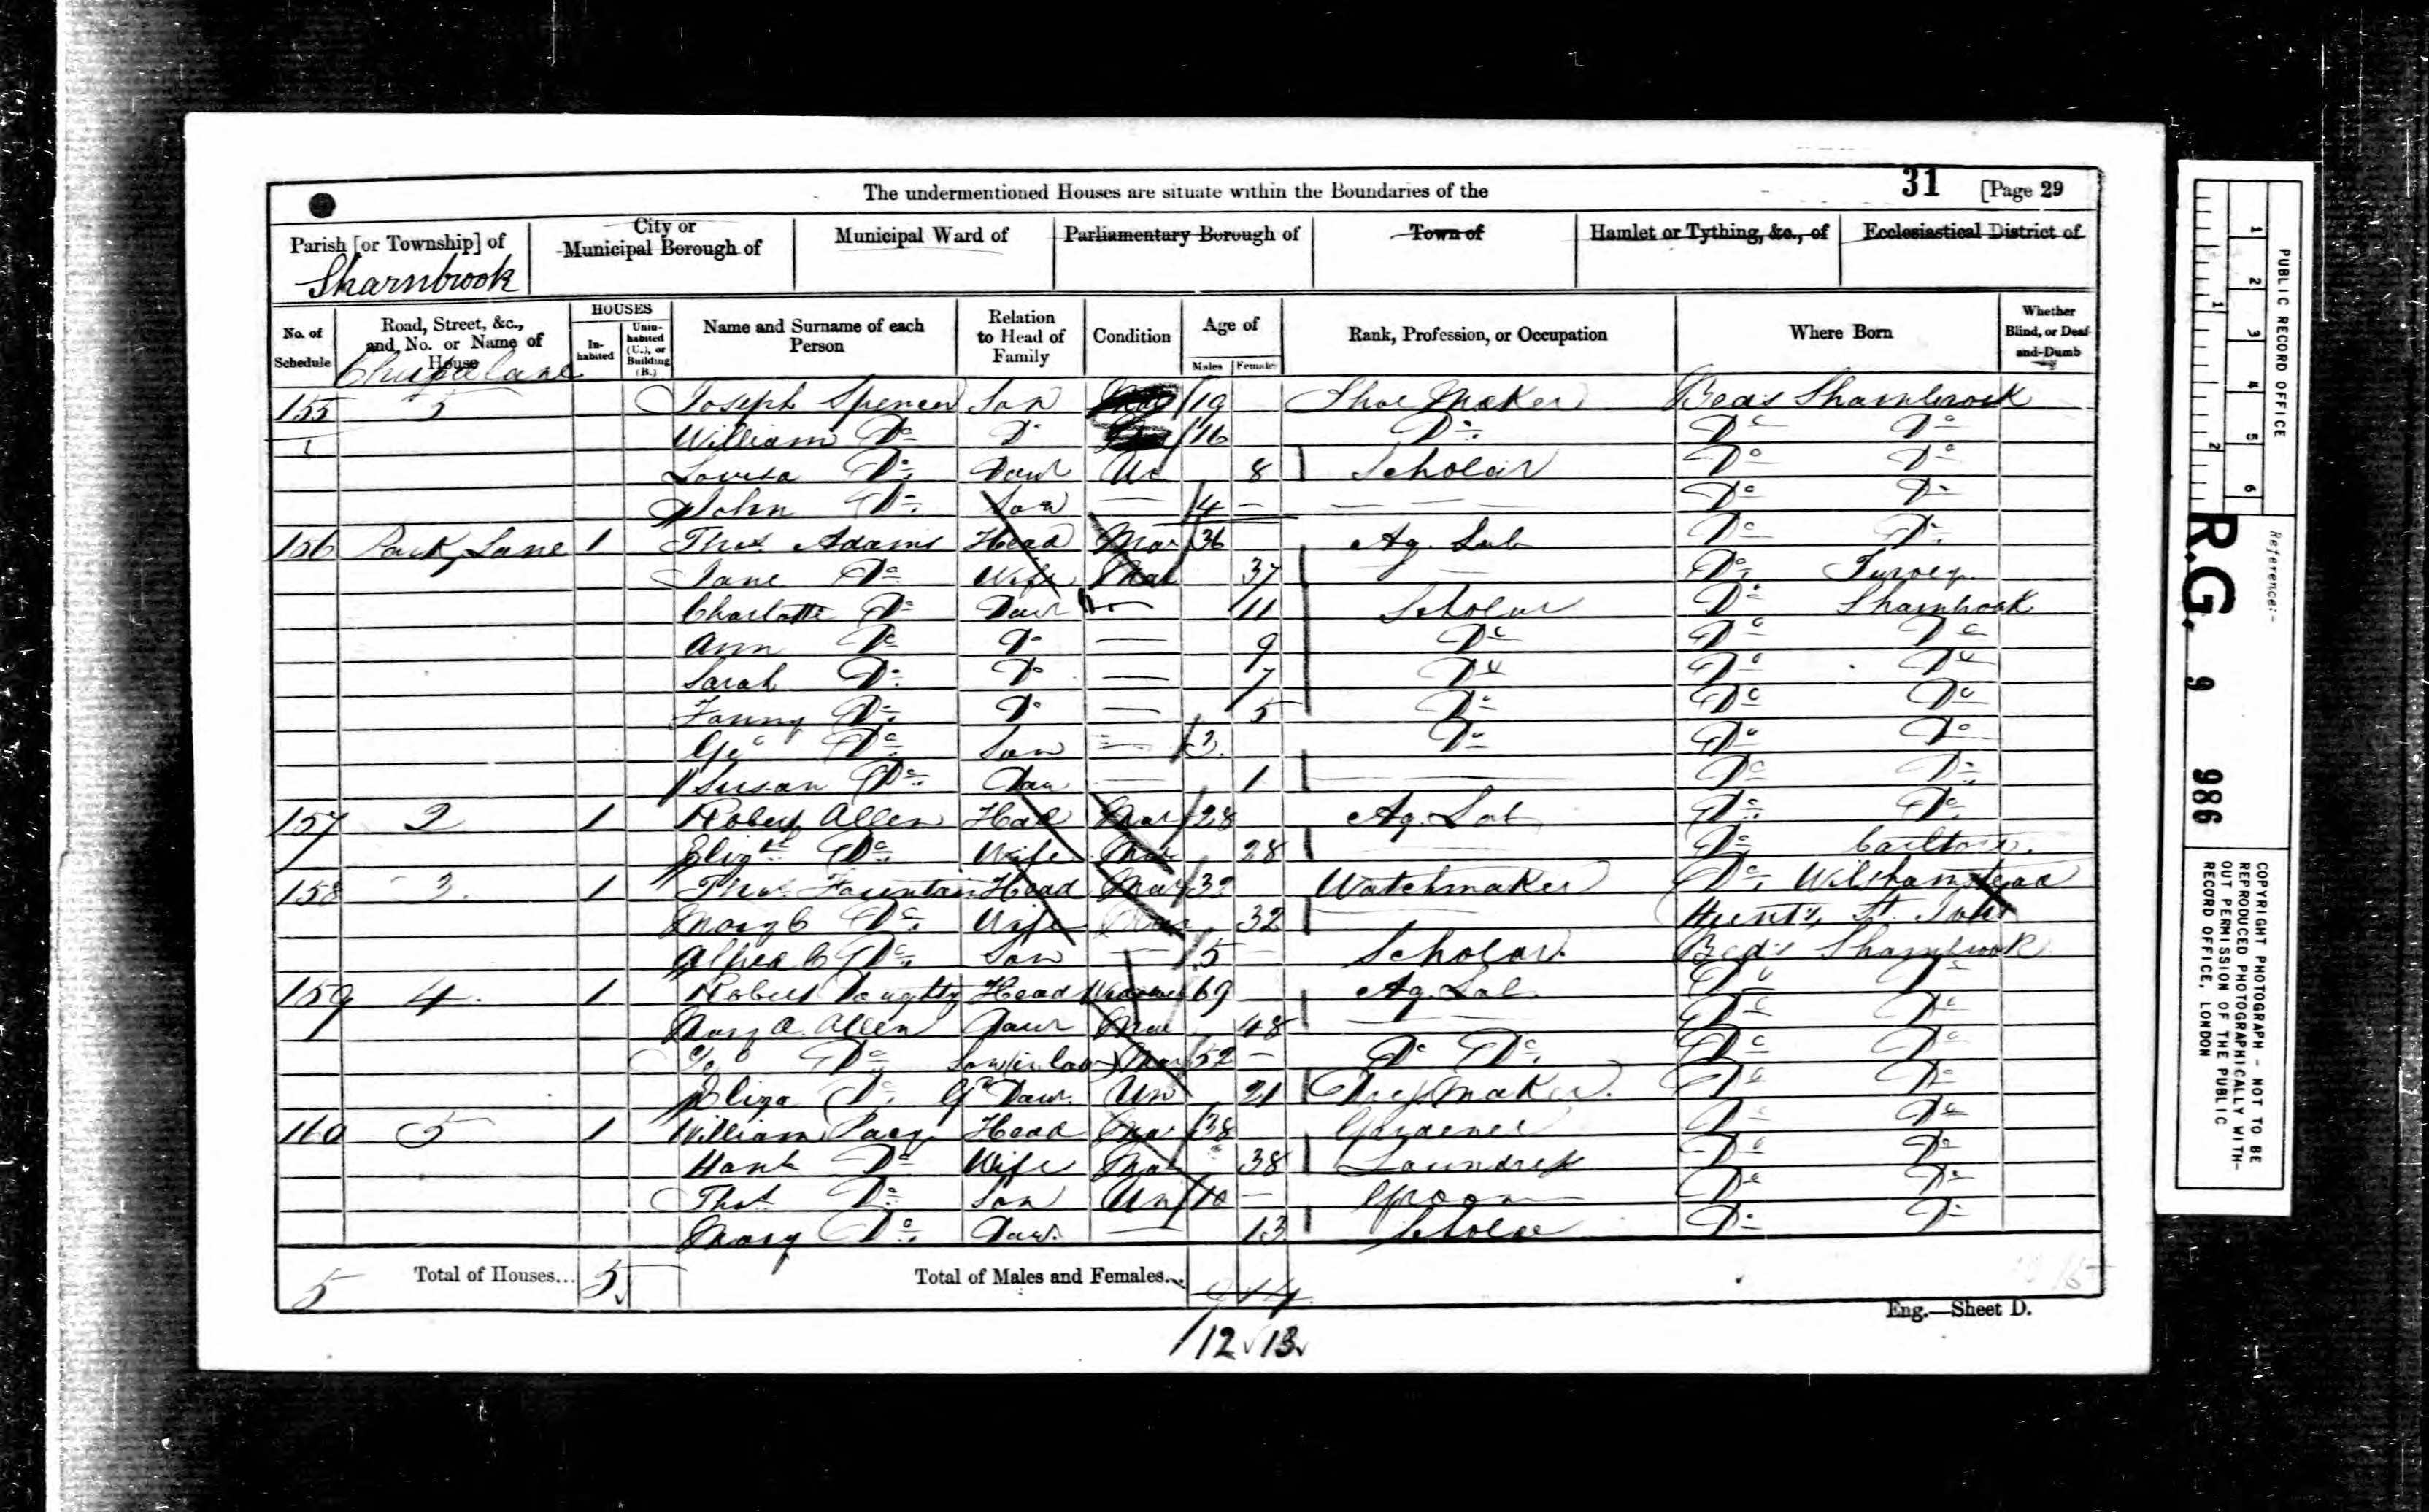 The undermentioned Houses are situate within the Boundaries of the 31 [Page 29
Parish [or Township] of City or Municipal Borough of Municipal Ward of Parliamentary Borough of Town of Hamlet or Tything, &c., of Ecclesiastical District of
Sharnbrook
No. of Schedule Road, Street, &c., and No. or Name of House HOUSES Inhabited Uninhabited (U.), or Building (B.) Name and Surname of each Person Relation to Head of Family Condition Age of Males Females Rank, Profession, or Occupation Where Born Whether Blind, or Deaf-and-Dumb
lane
155 5 Joseph Spencer Son 19 Shoe Maker Beds Sharnbrook
William Do Do 16 Do Do Do
Louisa Do Daur Un 8 Scholar Do Do
John Do Son — 4 — Do Do
156 Park Lane 1 Thos Adams Head Mar 36 Ag. Lab Do Do
Jane Do Wife Mar 37 Do Turvey
Charlotte Do Daur — 11 Scholar Do Sharnbrook
Ann Do Do — 9 Do Do Do
Sarah Do Do — 7 Do Do Do
Fanny Do Do — 5 Do Do Do
Geo Do Son — 3 Do Do Do
Susan Do Dau — 1 — Do Do
157 2 1 Robert Allen Head Mar 28 Ag. Lab Do Do
Elizth Do Wife Mar 28 Do Carlton
158 3 1 Thos Fountain Head Mar 32 Watchmaker Do Wilshamstead
Mary C Do Wife Mar 32 Hunts, St.
Alfred C Do Son — 5 — Scholar Beds Sharnbrook
159 4 1 Robert Head Widower 69 Ag. Lab. Do Do
Mary A. Allen Daur Mar 48 Do Do
Geo Do Son in law Mar 52 — Do Do Do Do
Eliza Do Gd Daur. Un 21 Dressmaker. Do Do
160 5 1 William Head Mar 38 Gardener Do Do
Hanh Do Wife Mar 38 Laundress Do Do
Thos Do Son Un 18 — Groom Do Do
Mary Do Daur. — 13 Scholar Do Do
5 Total of Houses... 5 Total of Males and Females... 14
12 13
Eng.—Sheet D.
PUBLIC RECORD OFFICE
1 2 3 4 5 6
1 2
Reference:-
R.G. 9 986
COPYRIGHT PHOTOGRAPH - NOT TO BE
REPRODUCED PHOTOGRAPHICALLY WITH-
OUT PERMISSION OF THE PUBLIC
RECORD OFFICE, LONDON